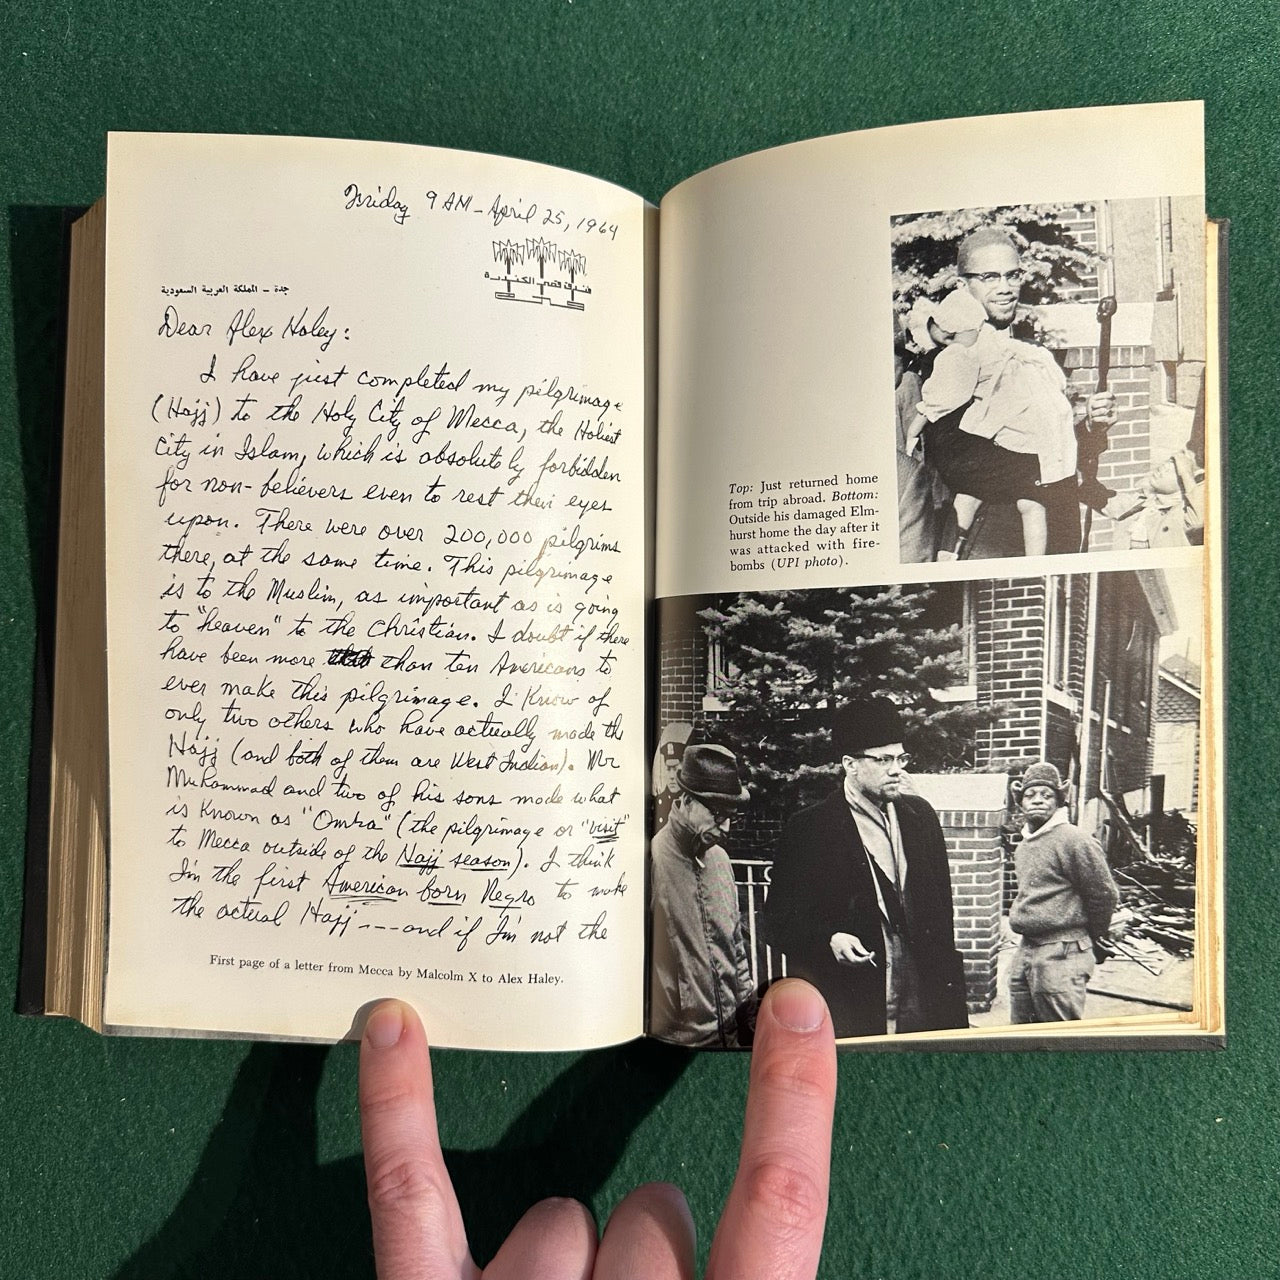 Friday 9 AM - April 25, 1964
فندق قصر الكندرة
جدة – المملكة العربية السعودية
Dear Alex Haley:
I have just completed my pilgrimage
(Hajj) to the Holy City of Mecca, the Holiest
City in Islam, which is absolutely forbidden
for non-believers even to rest their eyes
upon. There were over 200,000 pilgrims
there, at the same time. This pilgrimage
is to the Muslim, as important as is going
to "heaven" to the Christian. I doubt if there
have been more than ten Americans to
ever make this pilgrimage. I know of
only two others who have actually made the
Hajj (and both of them are West Indian). Mr
Muhammad and two of his sons made what
is known as "Omra" (the pilgrimage or "visit"
to Mecca outside of the Hajj season). I think
I'm the first American born Negro to make
the actual Hajj ---- and if I'm not the
First page of a letter from Mecca by Malcolm X to Alex Haley.
Top: Just returned home
from trip abroad. Bottom:
Outside his damaged Elm-
hurst home the day after it
was attacked with fire-
bombs (UPI photo).